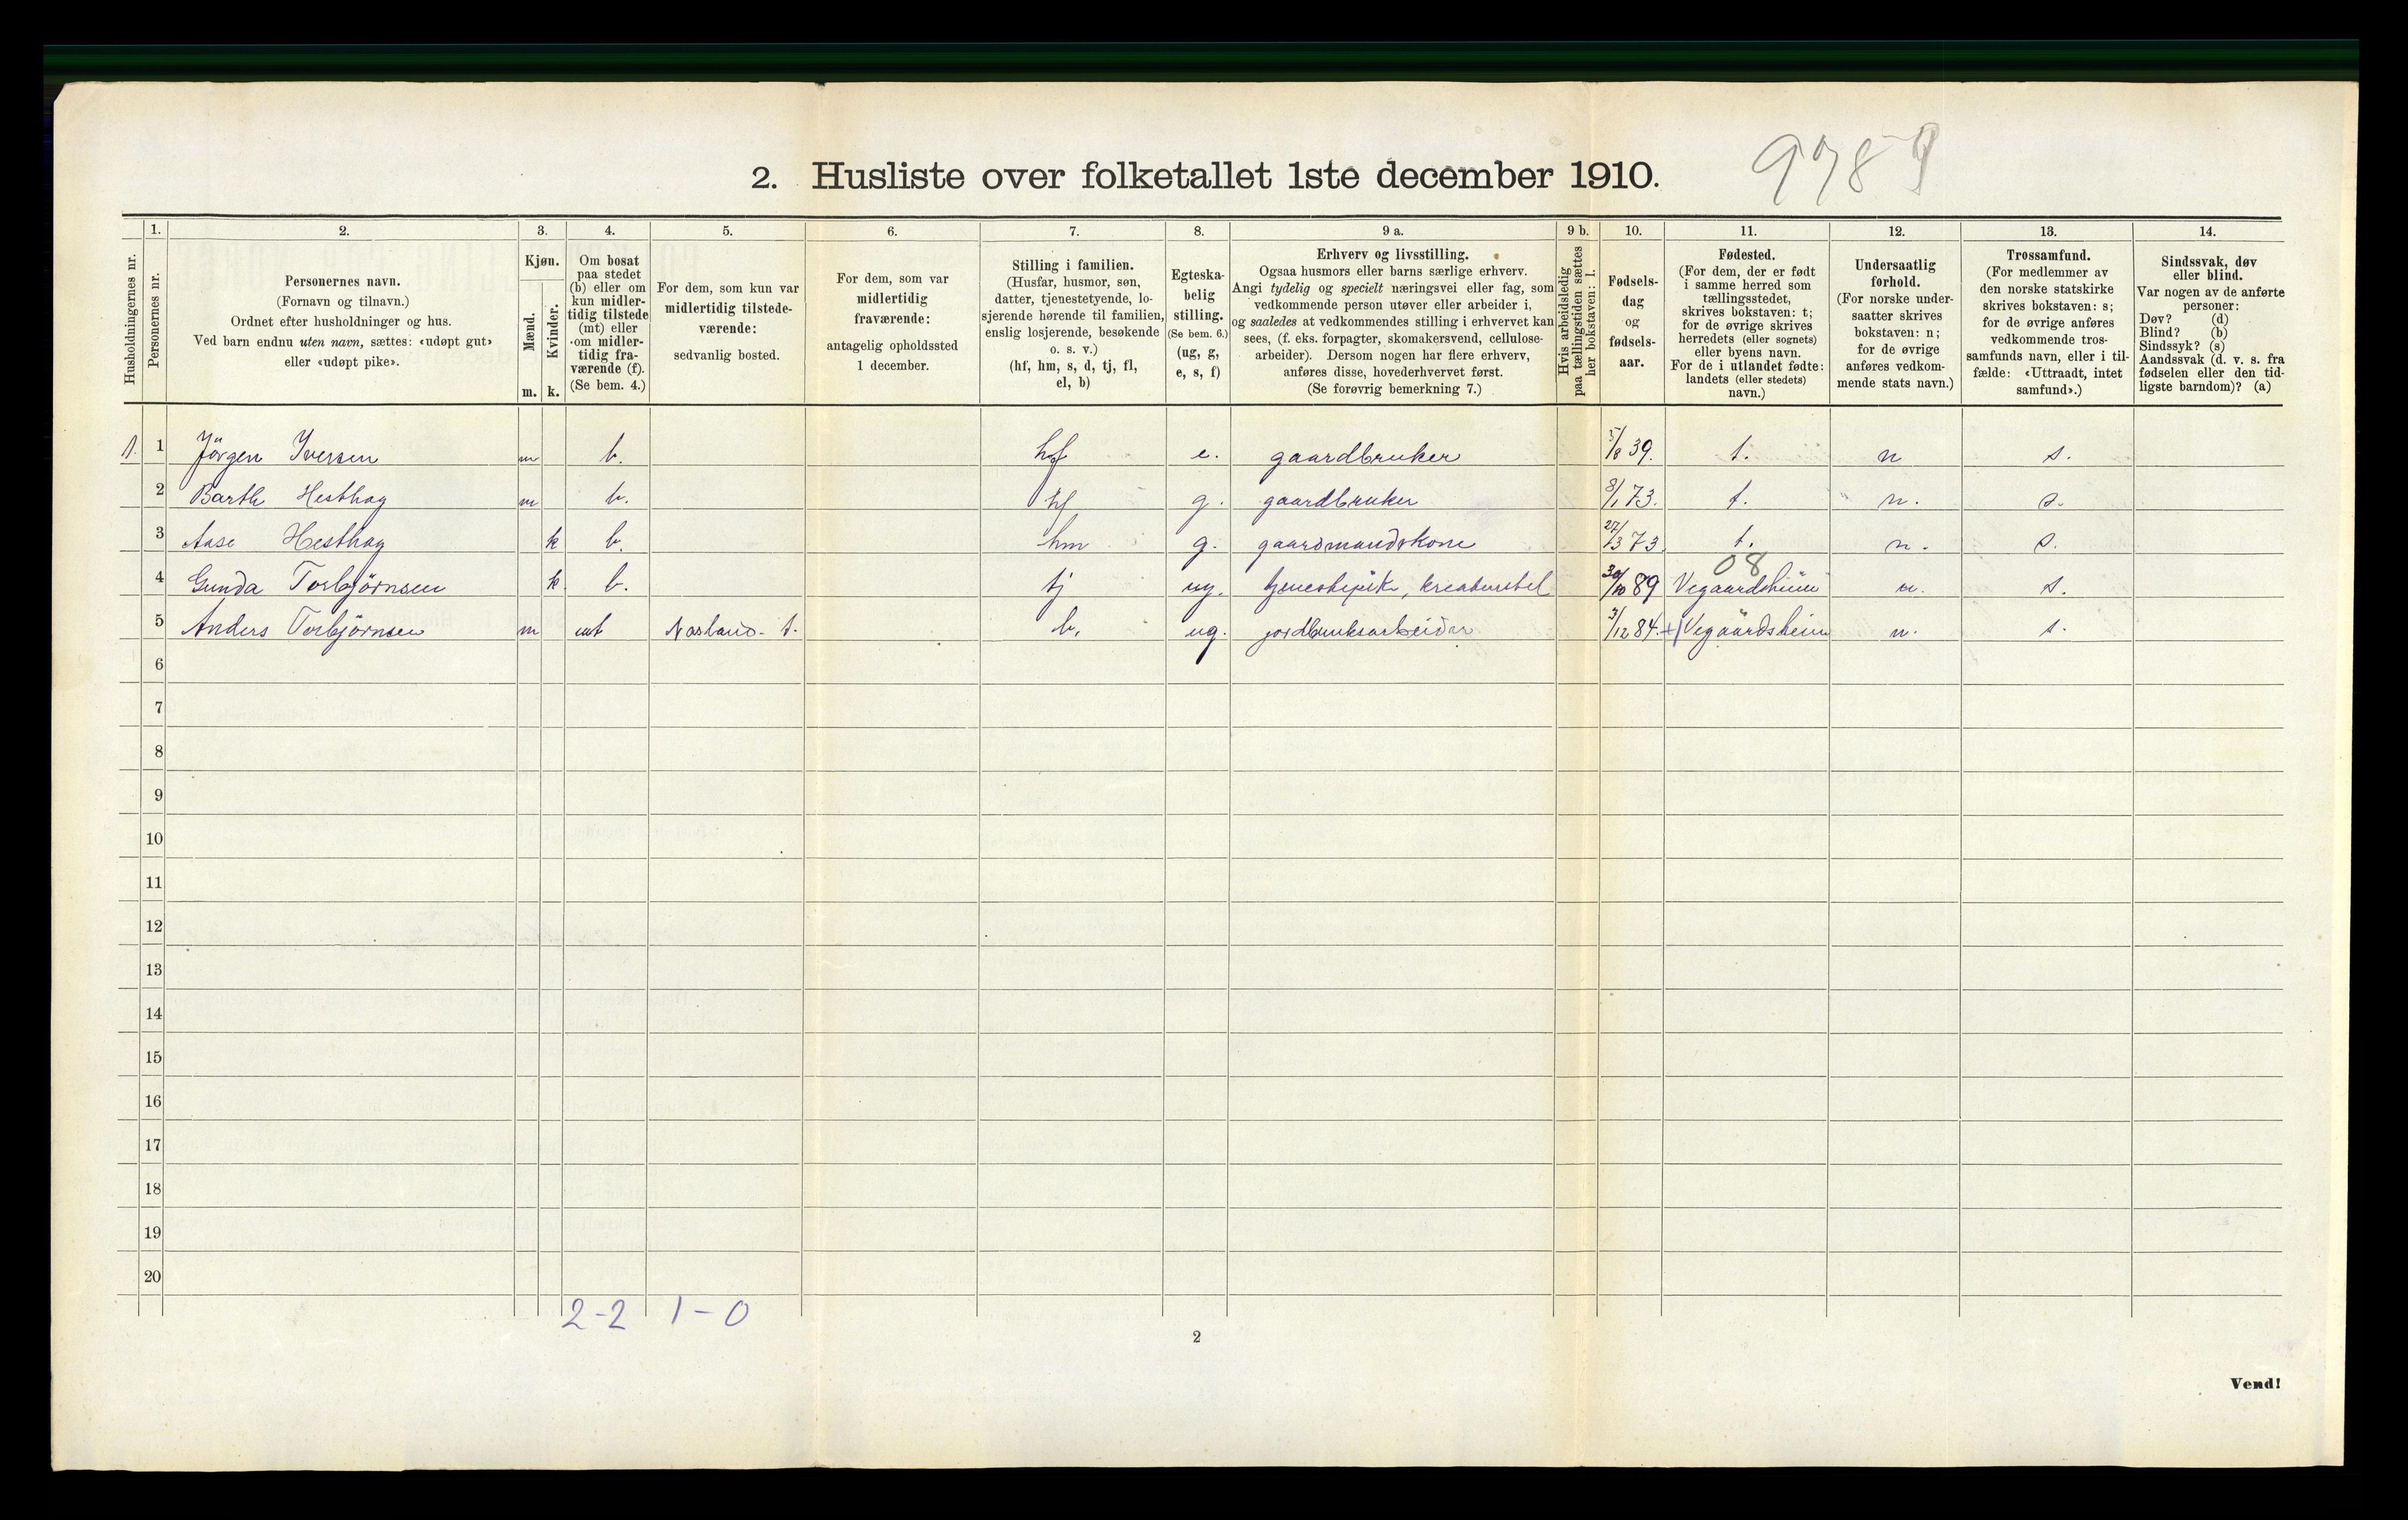 2. Husliste over folketallet 1ste december 1910. 9789
1. 2. 3. 4. 5. 6. 7. 8. 9 a. 9 b. 10. 11. 12. 13. 14.
Husholdningernes nr.
Personernes nr.
Personernes navn.
(Fornavn og tilnavn.)
Ordnet efter husholdninger og hus.
Ved barn endnu uten navn, sættes: «udøpt gut»
eller «udøpt pike».
Kjøn.
Mænd.
Kvinder.
m. k.
Om bosat
paa stedet
(b) eller om
kun midler-
tidig tilstede
(mt) eller
om midler-
tidig fra-
værende (f).
(Se bem. 4.)
For dem, som kun var
midlertidig tilstede-
værende:
sedvanlig bosted.
For dem, som var
midlertidig
fraværende:
antagelig opholdssted
1 december.
Stilling i familien.
(Husfar, husmor, søn,
datter, tjenestetyende, lo-
sjerende hørende til familien,
enslig losjerende, besøkende
o. s. v.)
(hf, hm, s, d, tj, fl,
el, b)
Egteska-
belig
stilling.
(Se bem. 6.)
(ug, g,
e, s, f)
Erhverv og livsstilling.
Ogsaa husmors eller barns særlige erhverv.
Angi tydelig og specielt næringsvei eller fag, som
vedkommende person utøver eller arbeider i,
og saaledes at vedkommendes stilling i erhvervet kan
sees, (f. eks. forpagter, skomakersvend, cellulose-
arbeider). Dersom nogen har flere erhverv,
anføres disse, hovederhvervet først.
(Se forøvrig bemerkning 7.)
Hvis arbeidsledig
paa tællingstiden sættes
her bokstaven: l.
Fødsels-
dag
og
fødsels-
aar.
Fødested.
(For dem, der er født
i samme herred som
tællingsstedet,
skrives bokstaven: t;
for de øvrige skrives
herredets (eller sognets)
eller byens navn.
For de i utlandet fødte:
landets (eller stedets)
navn.)
Undersaatlig
forhold.
(For norske under-
saatter skrives
bokstaven: n;
for de øvrige
anføres vedkom-
mende stats navn.)
Trossamfund.
(For medlemmer av
den norske statskirke
skrives bokstaven: s;
for de øvrige anføres
vedkommende tros-
samfunds navn, eller i til-
fælde: «Uttraadt, intet
samfund».)
Sindssvak, døv
eller blind.
Var nogen av de anførte
personer:
Døv? (d)
Blind? (b)
Sindssyk? (s)
Aandssvak (d. v. s. fra
fødselen eller den tid-
ligste barndom)? (a)
1. 1 Jörgen Iversen m b. hf e. gaardbruker 5/8 39. t. n s.
2 Barth Hesthag m b. hf g. gaardbruker 8/1 73. t. n. s.
3 Aase Hesthag k b. hm g. gaardmandskone 27/3 73. t. n. s.
08
4 Gunda Torbjörnsen k. b. tj ug. tjenestepike, kreaturstel 30/10 89 Vegaardsheim n. s.
5 Anders Torbjörnsen m mt t. b. ug. jordbruksarbeider 3/12 84. Vegaardsheim n. s.
6
7
8
9
10
11
12
13
14
15
16
17
18
19
20
2-2 1-0
2
Vend!